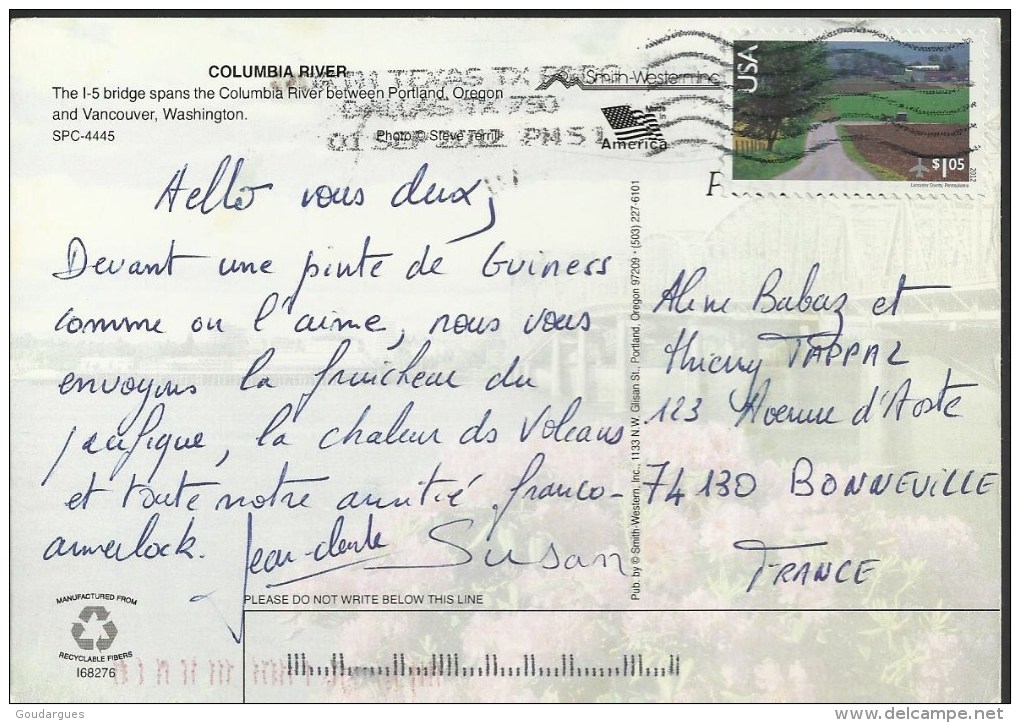 COLUMBIA RIVER
The I-5 bridge spans the Columbia River between Portland, Oregon
and Vancouver, Washington.
SPC-4445
Photo © Steve Terrill
Smith-Western Inc.
Made in
America
NORTH TEXAS TX P&DC
DALLAS TX 750
01 SEP 2012 PM 5 L
USA
$1.05
Lancaster County, Pennsylvania
2012
Hello vous deux,
Devant une pinte de Guiness
comme on l'aime, nous vous
envoyons la fraîcheur du
pacifique, la chaleur ds Volcans
et toute notre amitié franco-
amerlock. Jean-claude Susan
Pub. by © Smith-Western, Inc., 1133 N.W. Glisan St., Portland, Oregon 97209 • (503) 227-6101
Aline Babaz et
Thierry TAPPAZ
123 Avenue d'Aoste
74130 BONNEVILLE
FRANCE
PLEASE DO NOT WRITE BELOW THIS LINE
MANUFACTURED FROM
RECYCLABLE FIBERS
I68276
Goudargues
www.delcampe.net